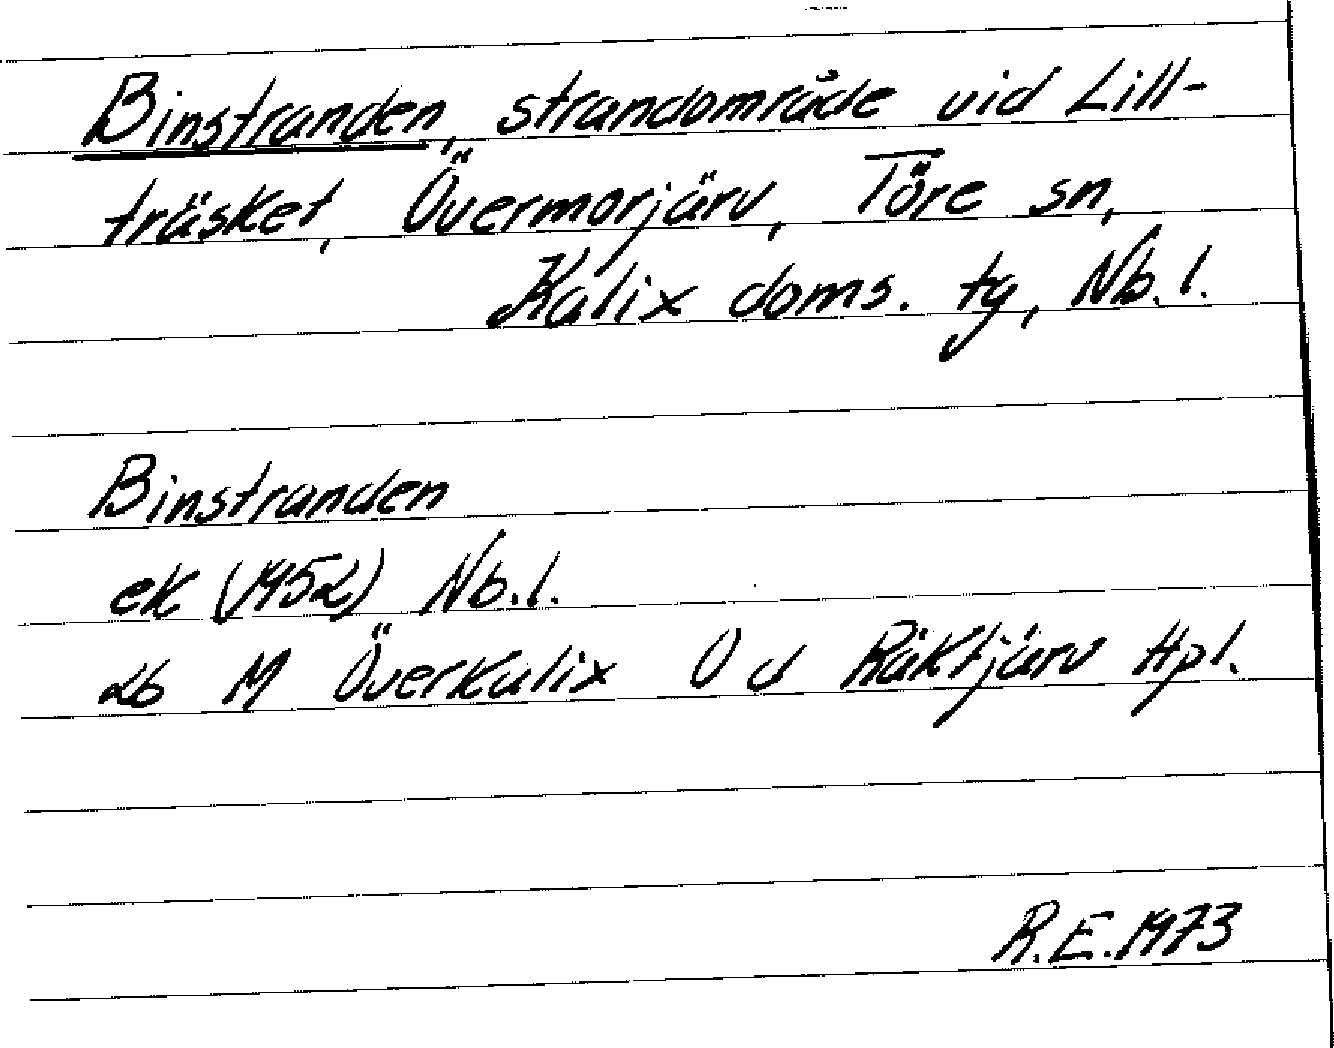 Binstranden, strandområde vid Lill-
träsket, Övermorjärv, Töre sn,
Kalix doms. tg, Nb. l.
Binstranden
ek (1952) Nb.l.
26 M Överkalix O d Räktjärv Hpl.
R.E.1973